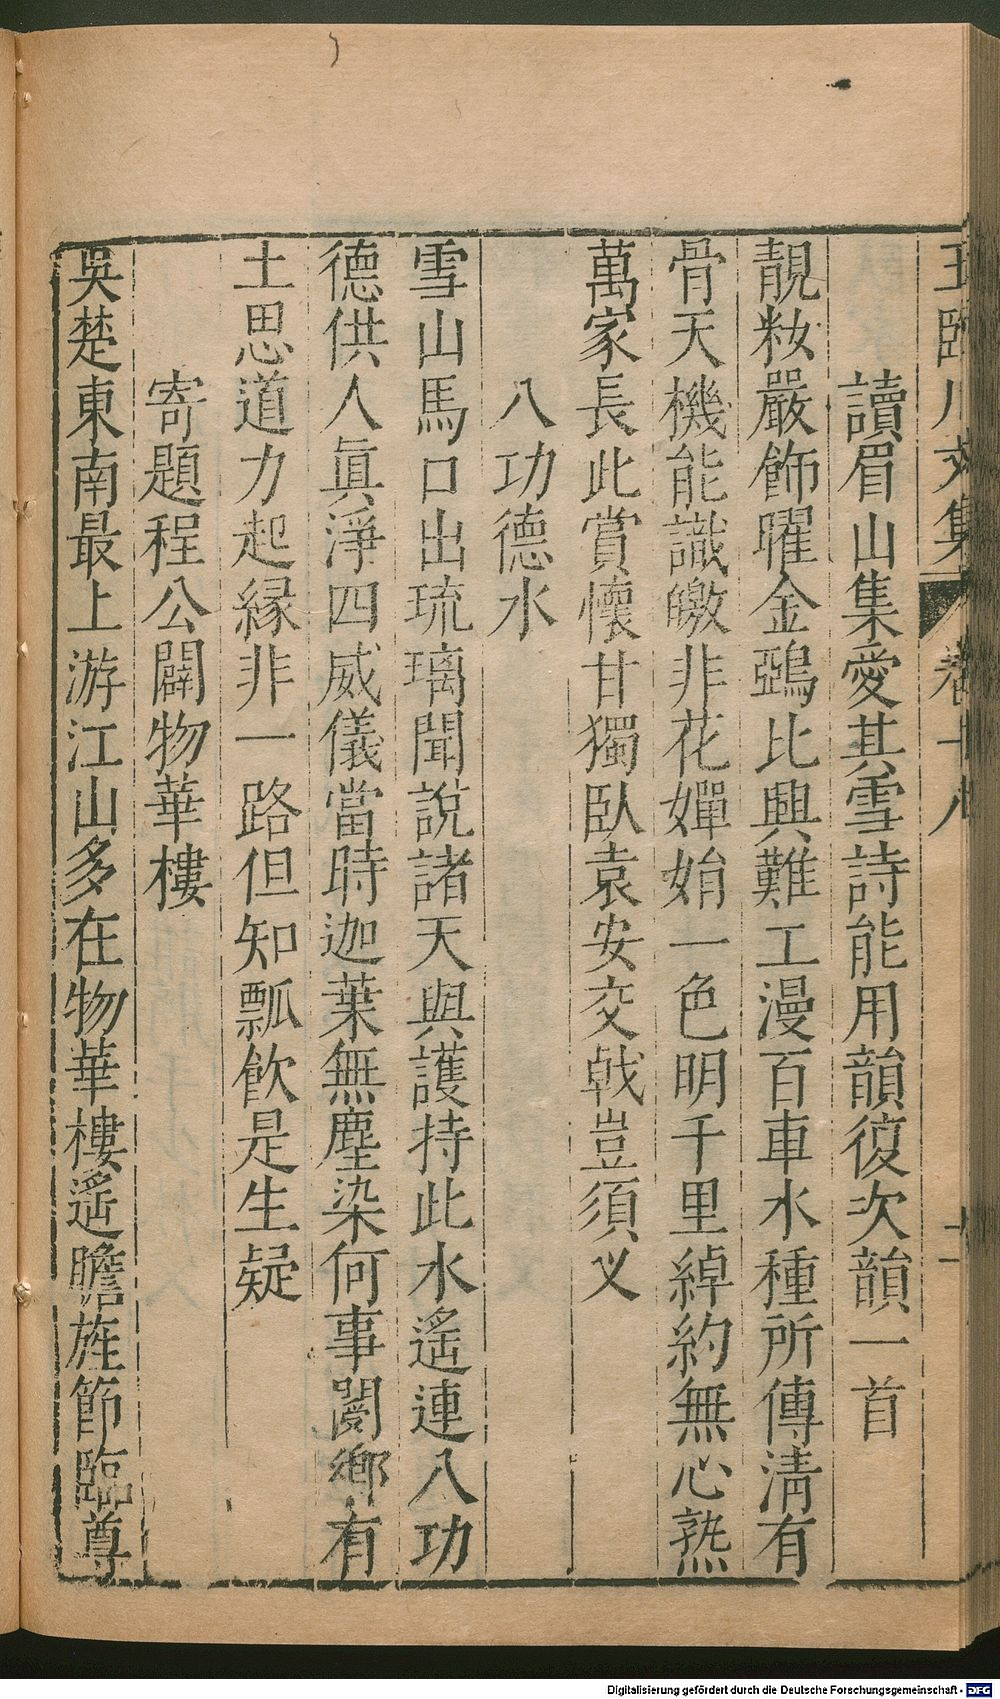 王臨川文集 卷十八 十二
讀眉山集愛其雪詩能用韻復次韻一首
靚籹嚴飾曜金鵶比興難工漫百車水種所傳淸有
骨天機能識皦非花嬋娟一色明千里綽約無心熟
萬家長此賞懷甘獨臥袁安交戟豈須叉
八功德水
雪山馬口出琉璃聞說諸天與護持此水遙連八功
德供人眞淨四威儀當時迦葉無塵染何事閿鄉有
土思道力起緣非一路但知瓢飮是生疑
寄題程公闢物華樓
吳楚東南最上游江山多在物華樓遙瞻旌節臨尊
Digitalisierung gefördert durch die Deutsche Forschungsgemeinschaft - DFG